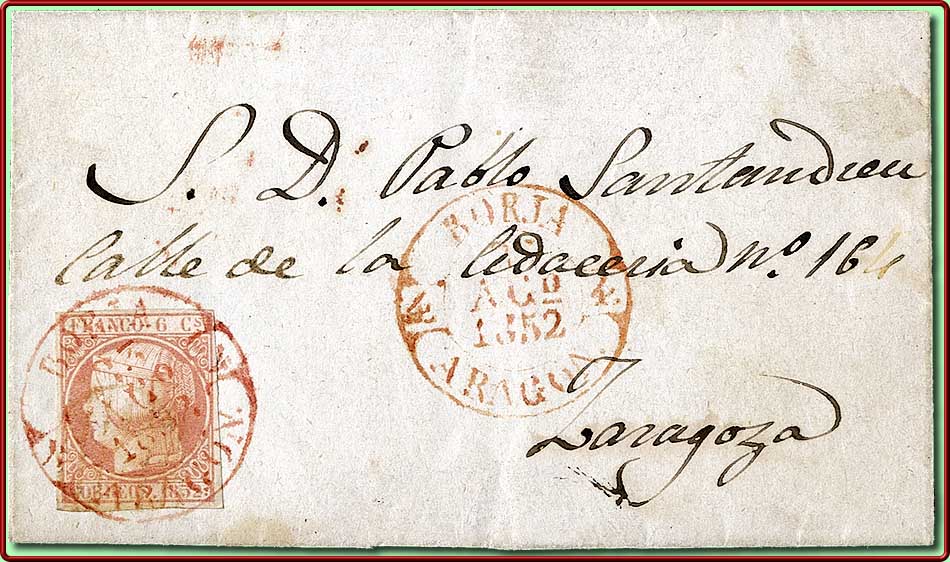 S. D. Pablo Santandreu
Calle de la Cedaceria nº. 164
BORJA
AGO
1852
ARAGON
FRANCO 6 Cs
CORREOS. 1852
Zaragoza